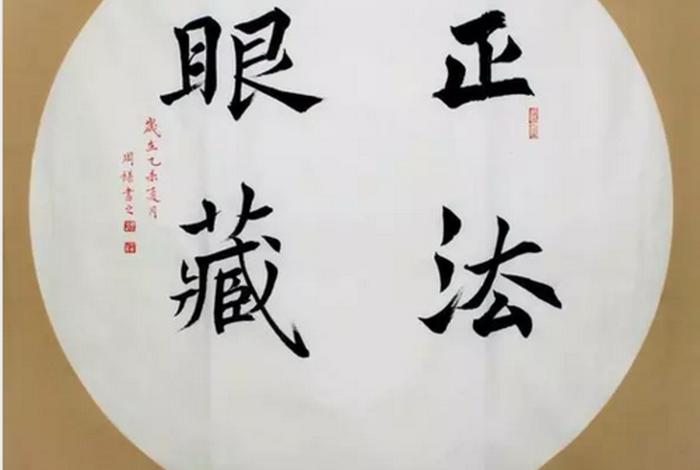 正法
眼藏
歲在乙未夏月
周樣書之